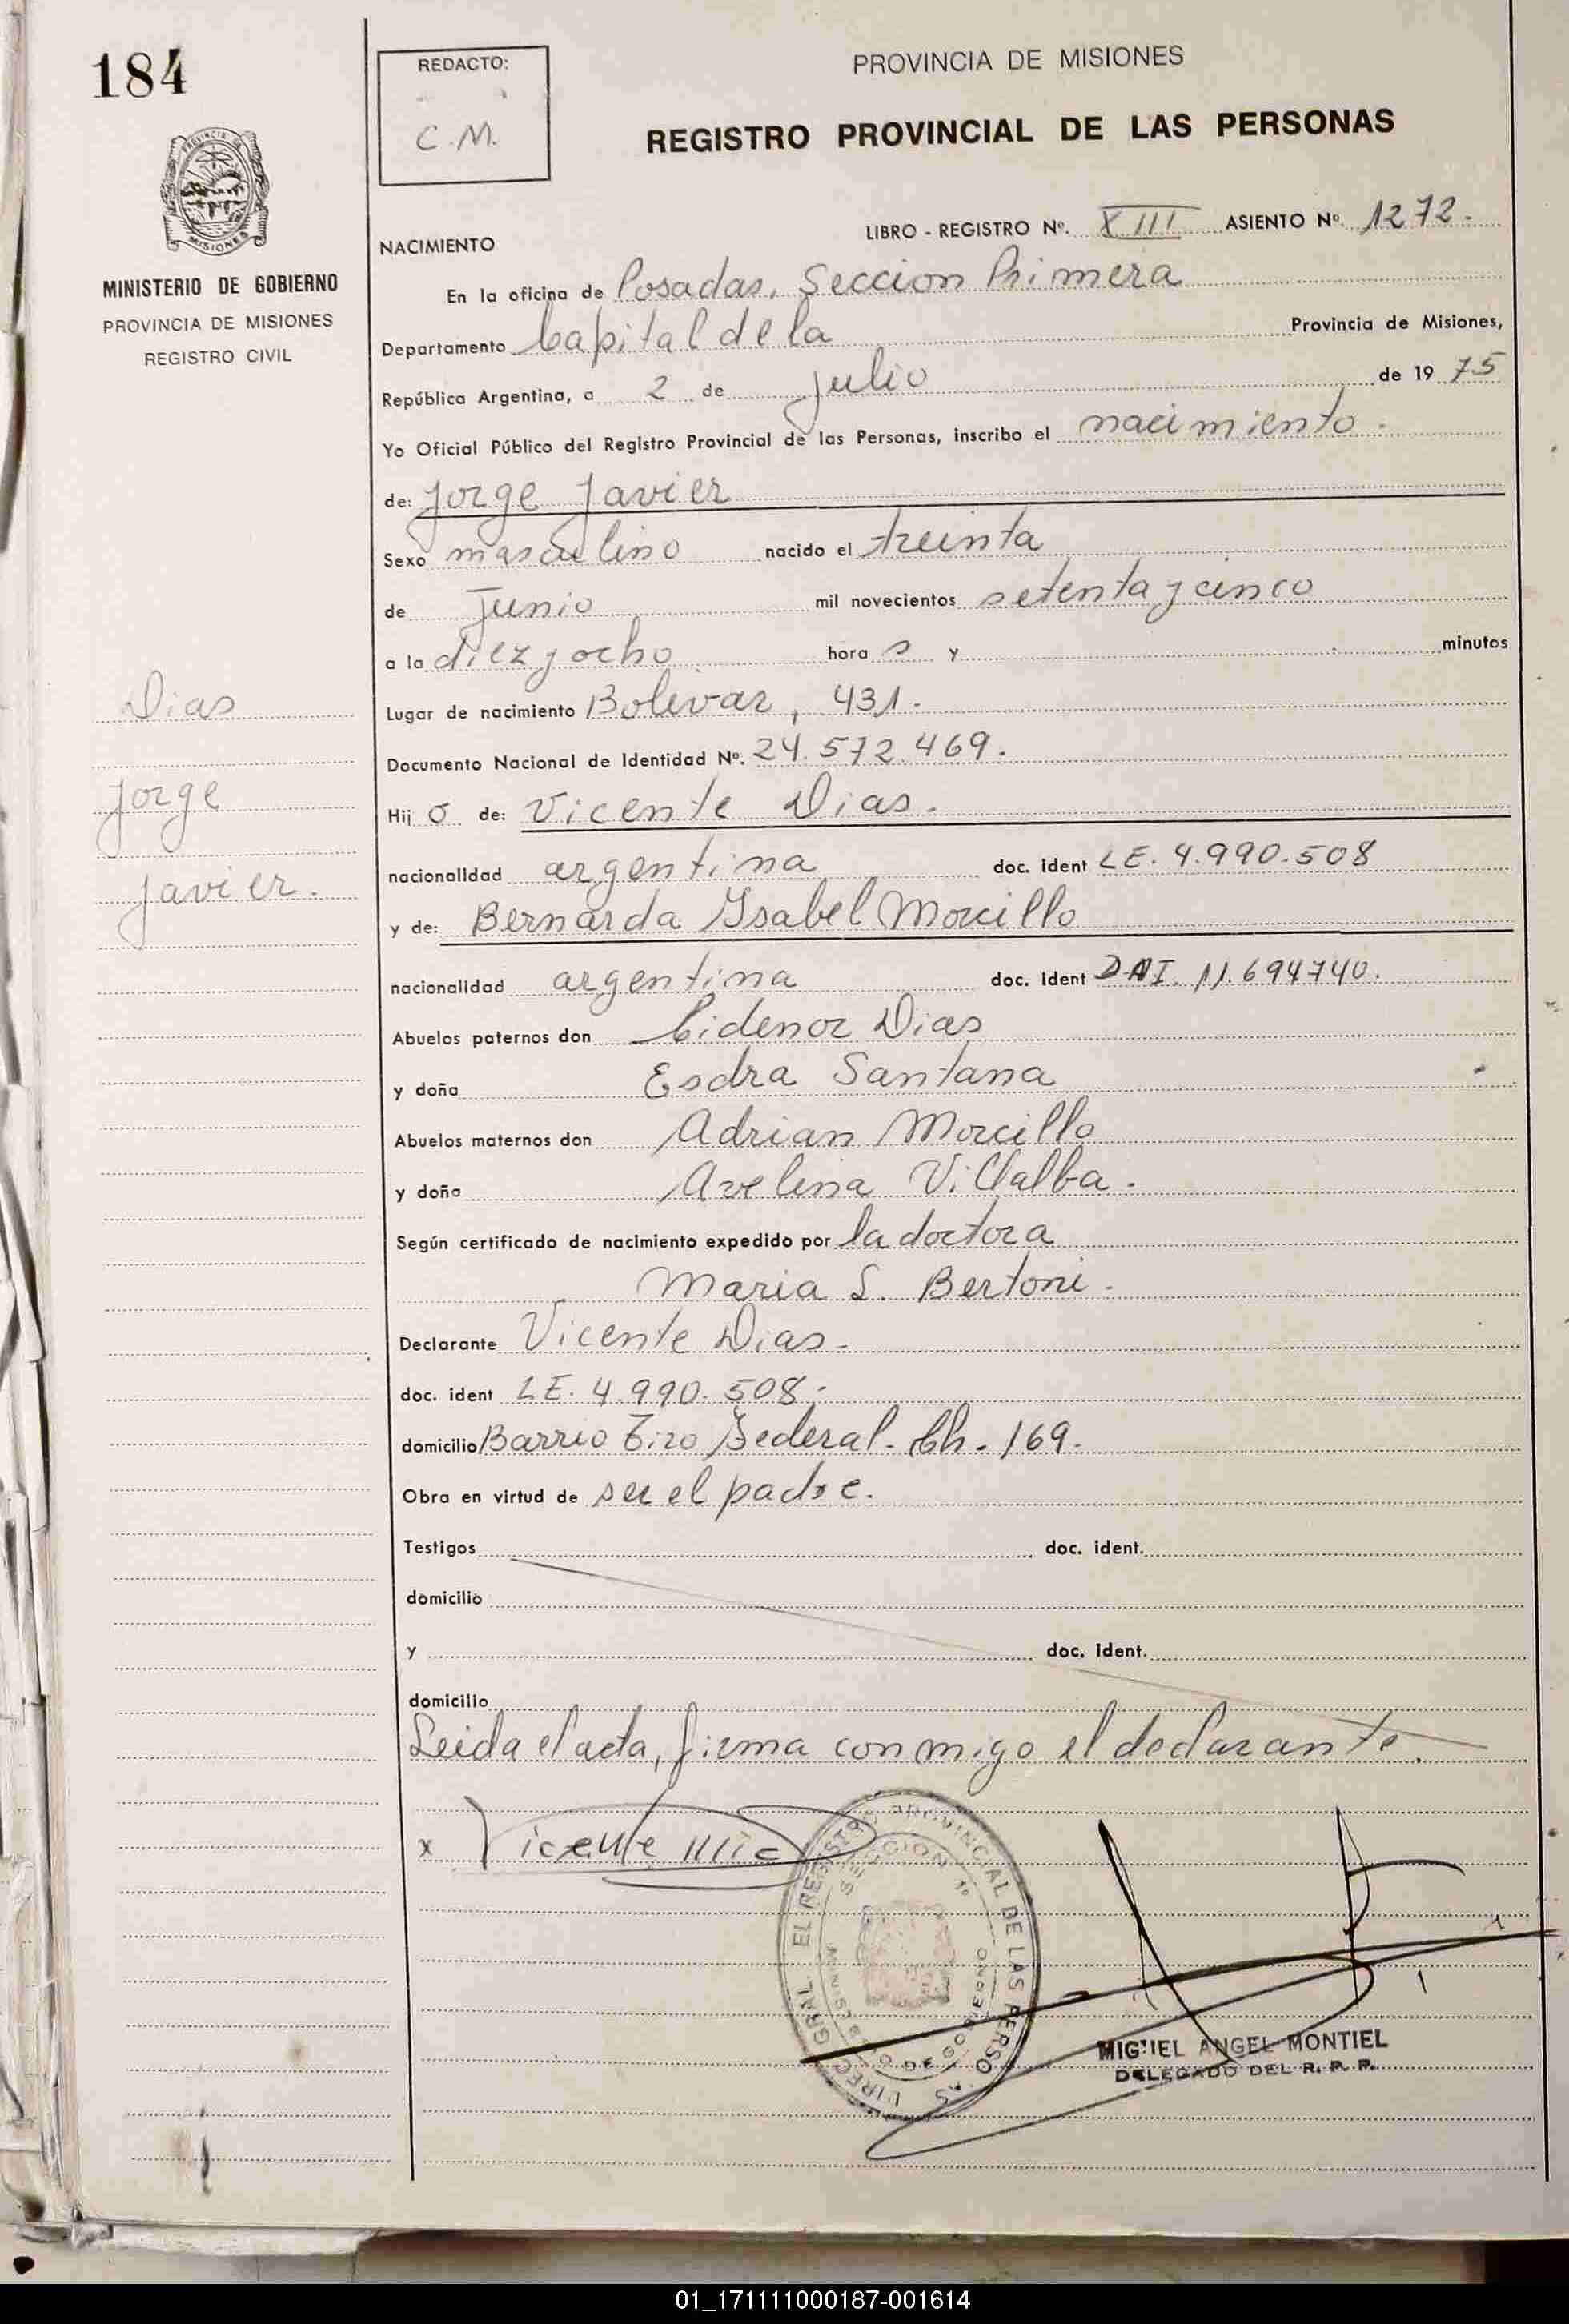 184
REDACTO:
C.M.
PROVINCIA DE MISIONES
REGISTRO PROVINCIAL DE LAS PERSONAS
PROVINCIA
MISIONES
MINISTERIO DE GOBIERNO
PROVINCIA DE MISIONES
REGISTRO CIVIL
LIBRO - REGISTRO Nº. XIII ASIENTO Nº. 1272.
NACIMIENTO
En la oficina de Posadas, Seccion Primera
Departamento Capital de la Provincia de Misiones,
República Argentina, a 2 de julio de 1975
Yo Oficial Público del Registro Provincial de las Personas, inscribo el nacimiento.
de: Jorge Javier
Sexo masculino nacido el treinta
de Junio mil novecientos setenta y cinco
a la diez y ocho hora s y minutos
Dias
Jorge
Javier.
Lugar de nacimiento Bolivar, 431.
Documento Nacional de Identidad Nº. 24.572.469.
Hij o de: Vicente Dias.
nacionalidad argentina doc. ident LE. 4.990.508
y de: Bernarda Ysabel Morcillo
nacionalidad argentina doc. ident DNI. 11.694740.
Abuelos paternos don Cidenor Dias
y doña Esdra Santana
Abuelos maternos don Adrian Morcillo
y doña Avelina Villalba.
Según certificado de nacimiento expedido por la doctora
Maria S. Bertoni.
Declarante Vicente Dias.
doc. ident LE. 4.990.508.
domicilio Barrio Tiro Federal. Ch. 169.
Obra en virtud de ser el padre.
Testigos doc. ident.
domicilio
y doc. ident.
domicilio
Leida el acta, firma conmigo el declarante.
x Vicente
REGISTRO PROVINCIAL DE LAS PERSONAS
SECCION 1º
MIGUEL ANGEL MONTIEL
DELEGADO DEL R. P. P.
01_171111000187-001614